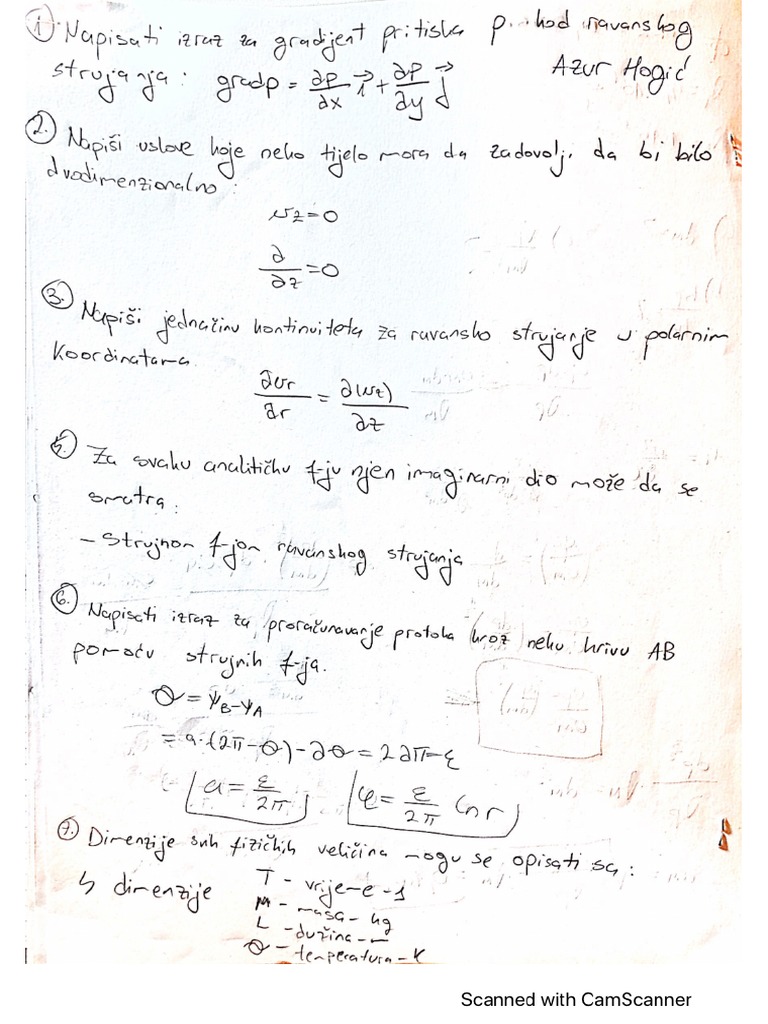 1) Napisati izraz za gradijent pritiska p. kod ravanskog
strujanja: gradp = ∂p/∂x i⃗ + ∂p/∂y j⃗
Azur Hogić
2. Napiši uslove koje neko tijelo mora da zadovolji da bi bilo
dvodimenzionalno:
vz=0
∂/∂z=0
3. Napiši jednačinu kontinuiteta za ravansko strujanje u polarnim
koordinatama
∂vr/∂r = ∂(vz)/∂z
5. Za svaku analitičku f-ju njen imaginarni dio može da se
smatra:
- Strujnom f-jom ravanskog strujanja
6. Napisati izraz za proračunavanje protoka kroz neku krivu AB
pomoću strujnih f-ja.
Q = ψB-ψA
= a·(2π-θ)-∂θ = 2∂π=ε
a = ε/2π
φ = ε/2π ln r
7. Dimenzije svih fizičkih veličina mogu se opisati sa:
4 dimenzije
T - vrijeme - s
M - masa - kg
L - dužina - m
θ - temperatura - K
Scanned with CamScanner